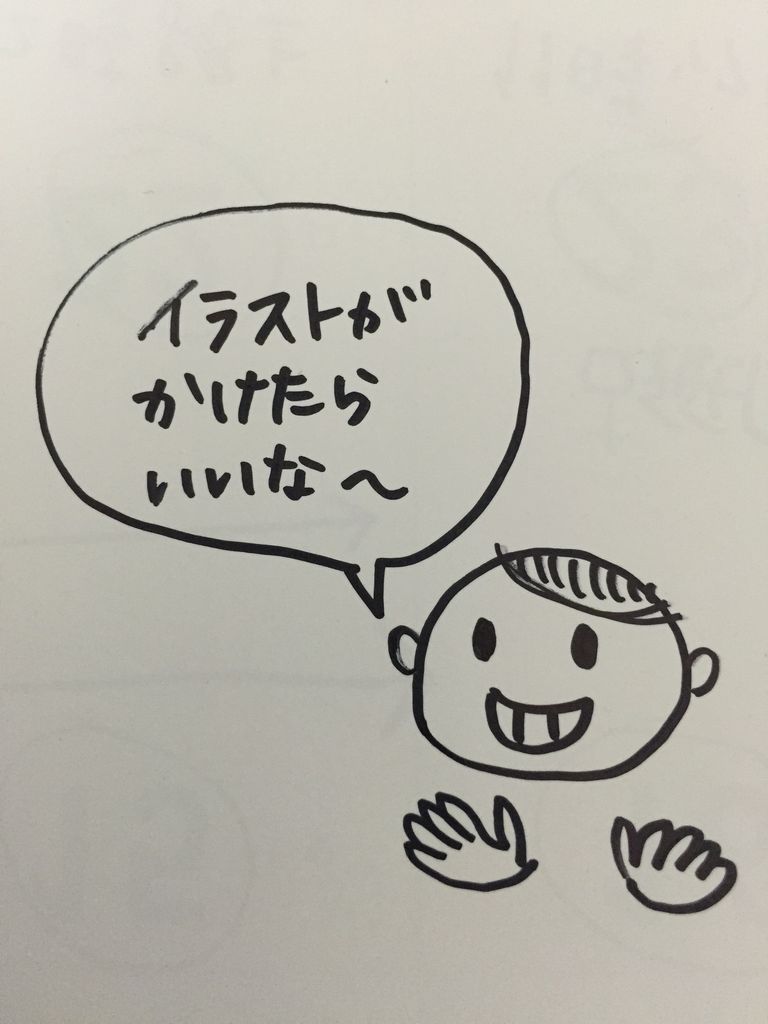 イラストが
かけたら
いいな〜